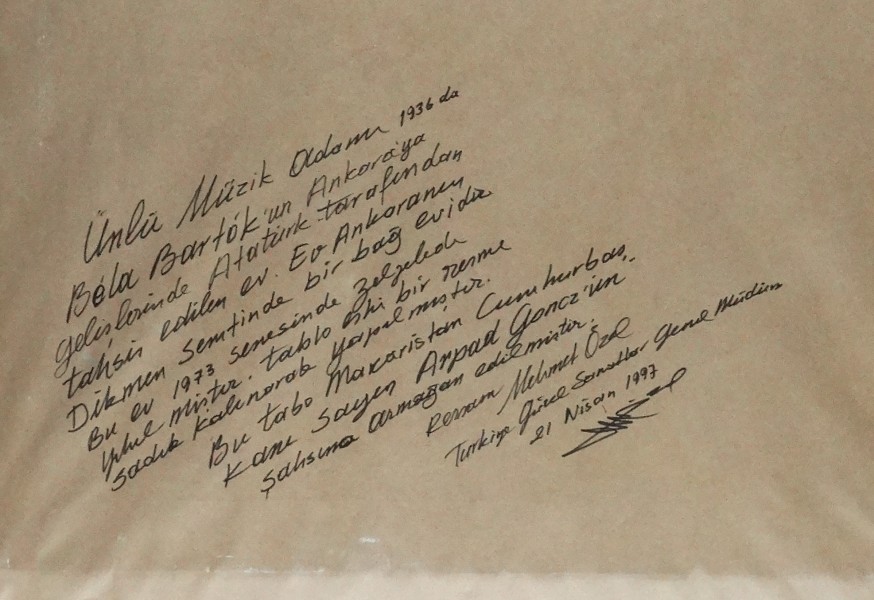 Ünlü Müzik Adamı 1936 da
Béla Bartók'un Ankara'ya
gelişlerinde Atatürk tarafından
tahsis edilen ev. Ev Ankaranın
Dikmen semtinde bir bağ evidir
Bu ev 1973 senesinde zelzelede
yıkılmıştır. tablo eski bir resme
sadık kalınarak yapılmıştır.
Bu tabo Macaristan Cumhurbaş-
kanı Sayın Arpad Goncz'ün
şahsına armağan edilmiştir.
Ressam Mehmet Özel
Türkiye Güzel Sanatlar Genel Müdürü
21 Nisan 1997